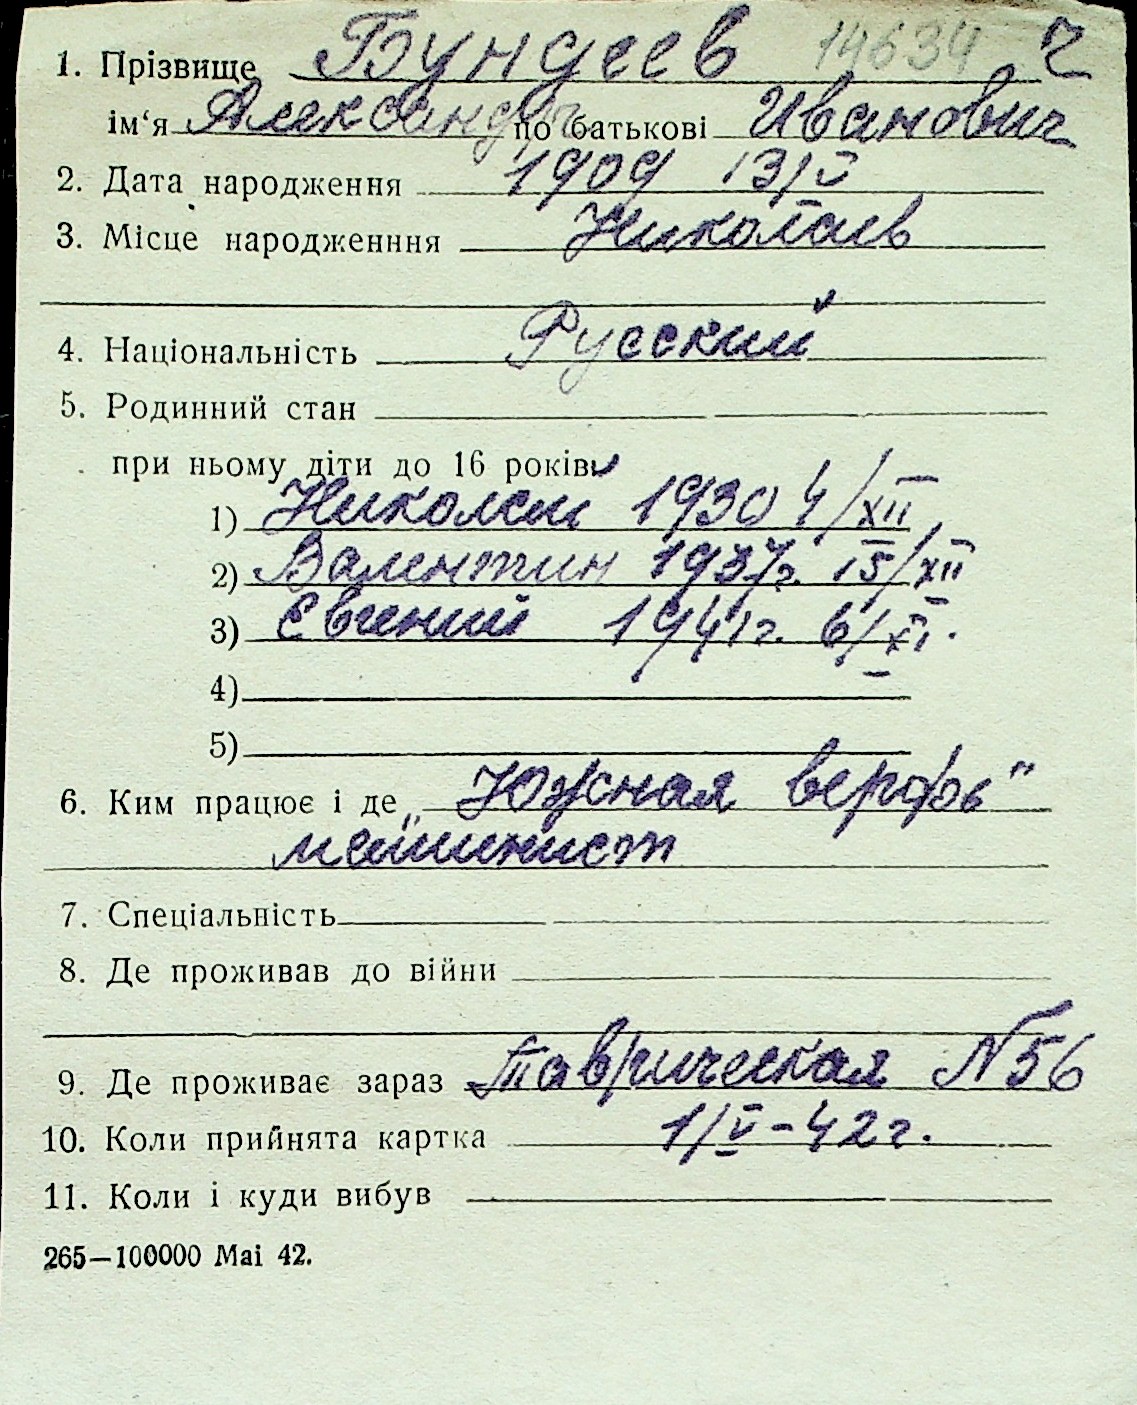 1. Прізвище Бундеев 14634 Ч
ім‘я Александр по батькові Иванович
2. Дата народження 1909 13/V
3. Місце народженння Николаев
4. Національність Русский
5. Родинний стан
при ньому діти до 16 років:
1) Николай 1930 4/XII
2) Валентин 1937г. 15/XII
3) Евгений 1941г. 6/XI.
4)
5)
6. Ким працює і де „Южная верфь"
машинист
7. Спеціальність
8. Де проживав до війни
9. Де проживає зараз Таврическая N56
10. Коли прийнята картка 1/V-42г.
11. Коли і куди вибув
265—100000 Mai 42.